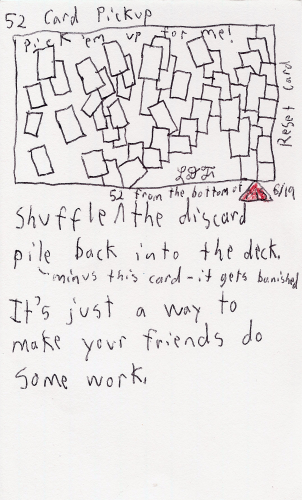 52 Card Pickup
pick 'em up for me!
Reset Card
6/19
52 from the bottom of
Shuffle ^ the discard
pile back into the deck.
minus this card - it gets banished
It's just a way to
make your friends do
some work.